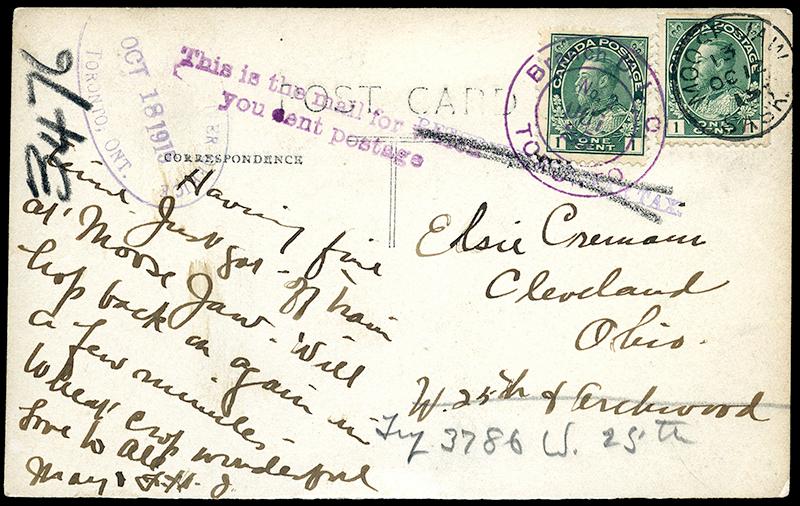 3476
TORONTO, ONT.
OCT 18 1918
This is the mail for
you sent postage
TAX.
POST CARD
CORRESPONDENCE
CANADA POSTAGE
1 ONE CENT 1
CANADA POSTAGE
1 ONE CENT
MOOSE JAW
SASK.
BRANCH
No. 2
TORONTO
Having fine
time. Just got off train
at Moose Jaw. Will
hop back on again in
a few minutes
Wheat crop wonderful
Love to all
May &
Elsie Cremam
Cleveland
Ohio.
W. 25th & Archwood
Try 3786 W. 25th